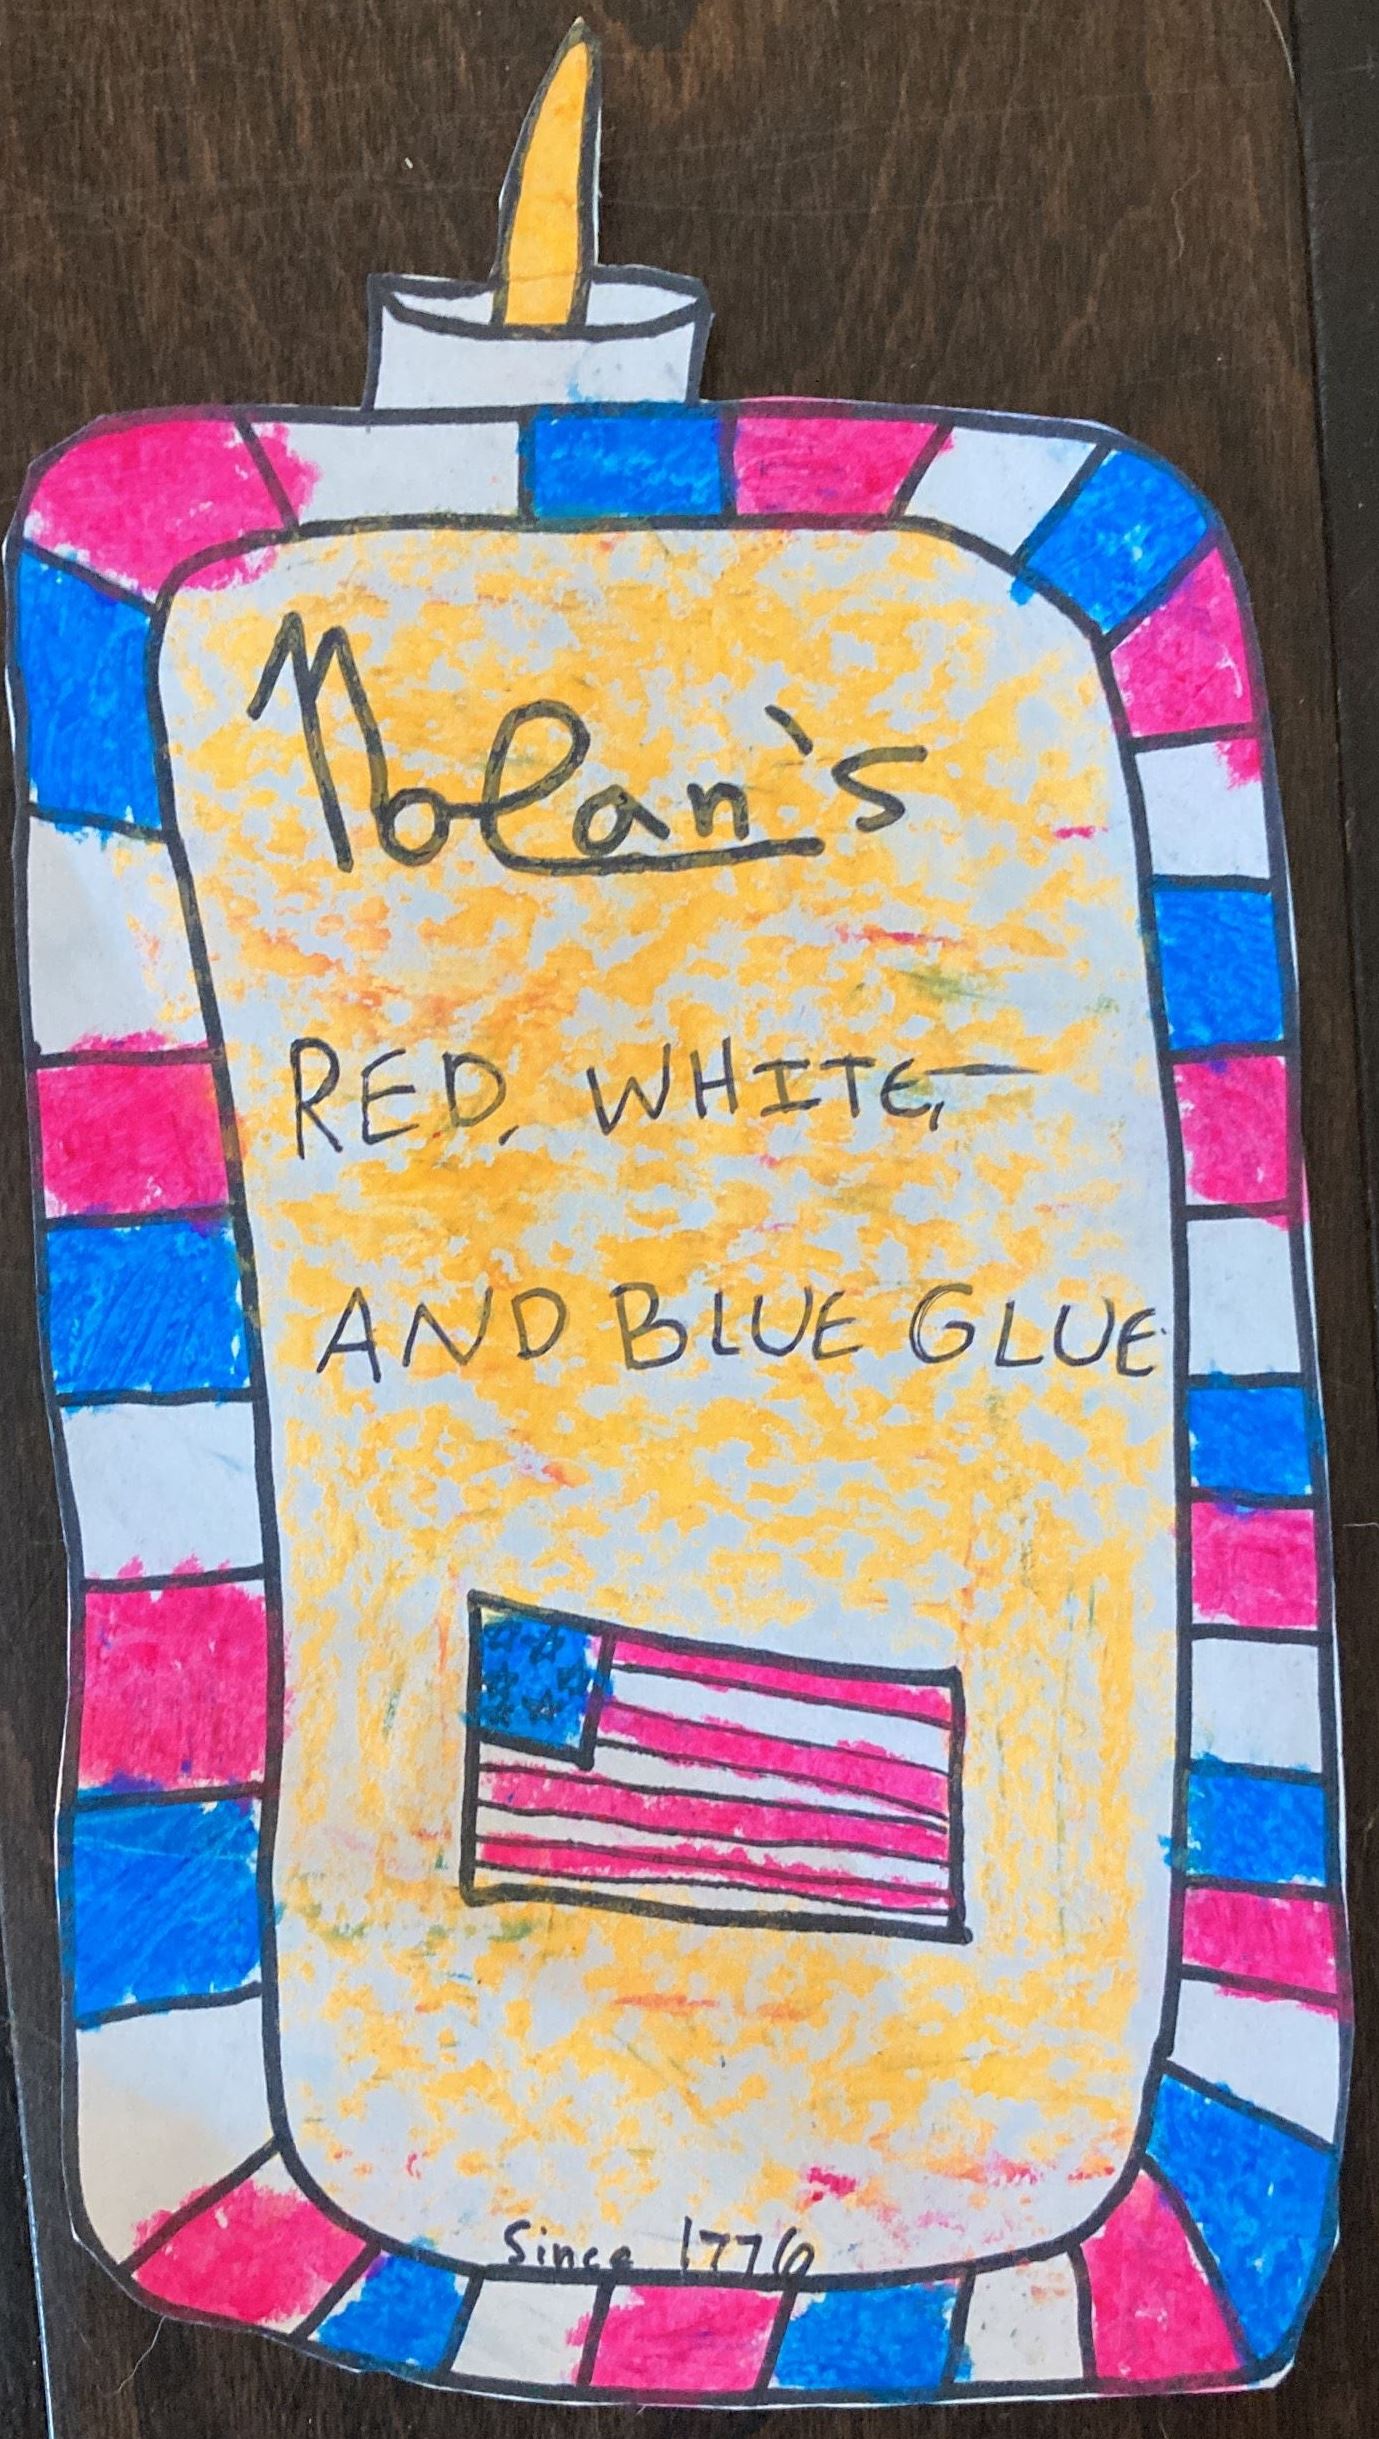 Nolan's
RED, WHITE,
AND BLUE GLUE
Since 1776